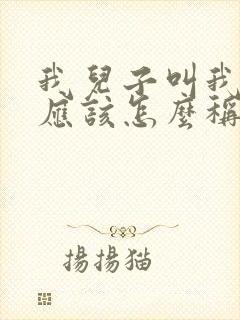 我兒子叫我
應該怎麼稱
揚揚猫